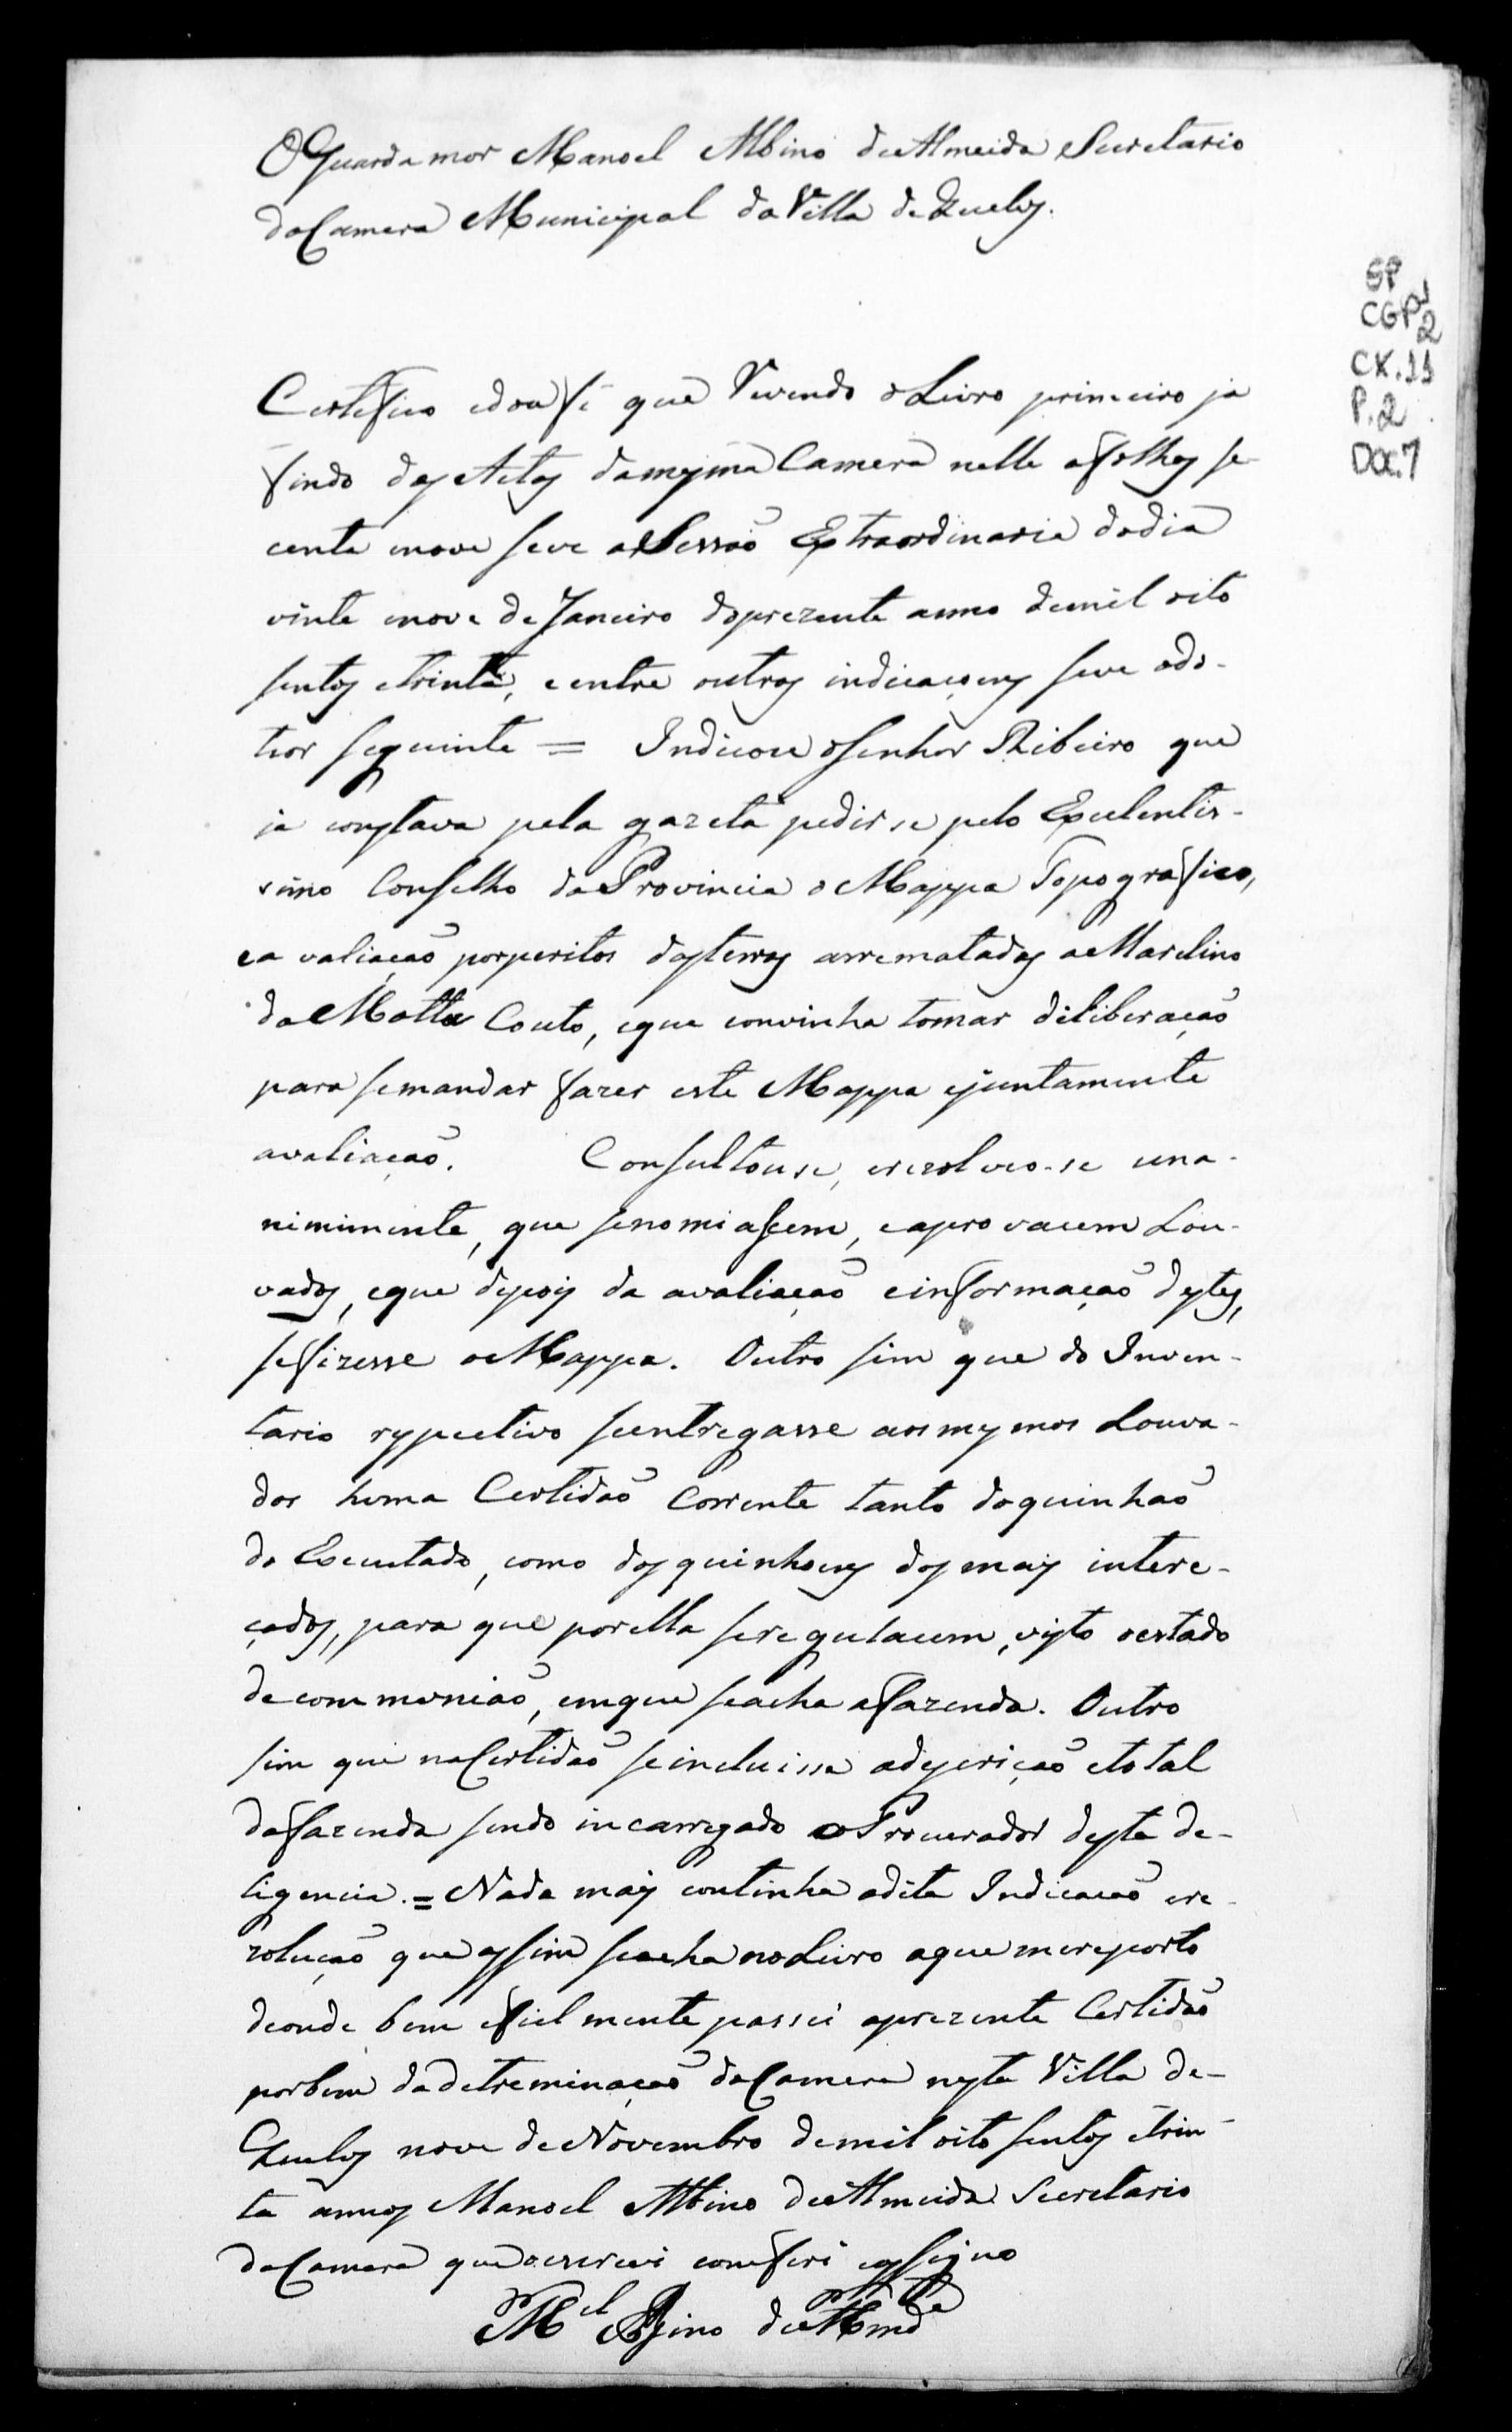 O Guarda mor Manoel Albino de Almeida Secretario
da Camera Municipal da Villa de Queluz.
SP
CGP1
2
CX. 11
P. 2
DOC. 7
Certefico e dou fé que Revendo o Livro primeiro ja
findo das Actas da mesma Camera nelle a folhas se
centa e nove se ve a Sessaõ Extraordinaria do dia
vinte e nove de Janeiro do prezente anno de mil oito
sentos e trinta, e entre outras indicaçoens se ve a do
teor seguinte = Indicou o Senhor Ribeiro que
ja constava pela gazeta pedir se pelo Excelentis-
simo Conselho da Provincia o Mappa Topografico,
e a valiaçaõ por peritos das terras arrematadas a Marcelino
da Motta Couto, e que convinha tomar diliberaçaõ
para se mandar fazer este Mappa e juntamente
avaliaçaõ. Consultou se, e rezolveo-se una-
nimimente, que se nomiassem, e aprovacem Lou-
vados, e que depois da avaliaçaõ e informaçaõ destes,
se fizesse o Mappa. Outro sim que do Inven-
tario respectivo se entregasse aos mesmos Louva-
dos huma Certidaõ Corrente tanto do quinhaõ
do Executado, como dos quinhoens dos mais intere-
çados, para que por ella se regulacem, visto o estado
de communiaõ, em que se acha a fazenda. Outro
sim que na Certidaõ se incluisse a discriçaõ e total
da fazenda sendo incarregado o Procurador desta de-
ligencia. = Nada mais continha a dita Indicacaõ e re-
zoluçaõ que assim se acha no Livro a que me reporto
de onde bem e fielmente passei a prezente Certidaõ
por bem da detreminaçaõ da Camera nesta Villa de-
Queluz nove de Novembro de mil oito sentos e trin
ta annos Manoel Albino de Almeida Secretario
da Camara que o escrevi conferi e assigno
Mel Albino de Almda